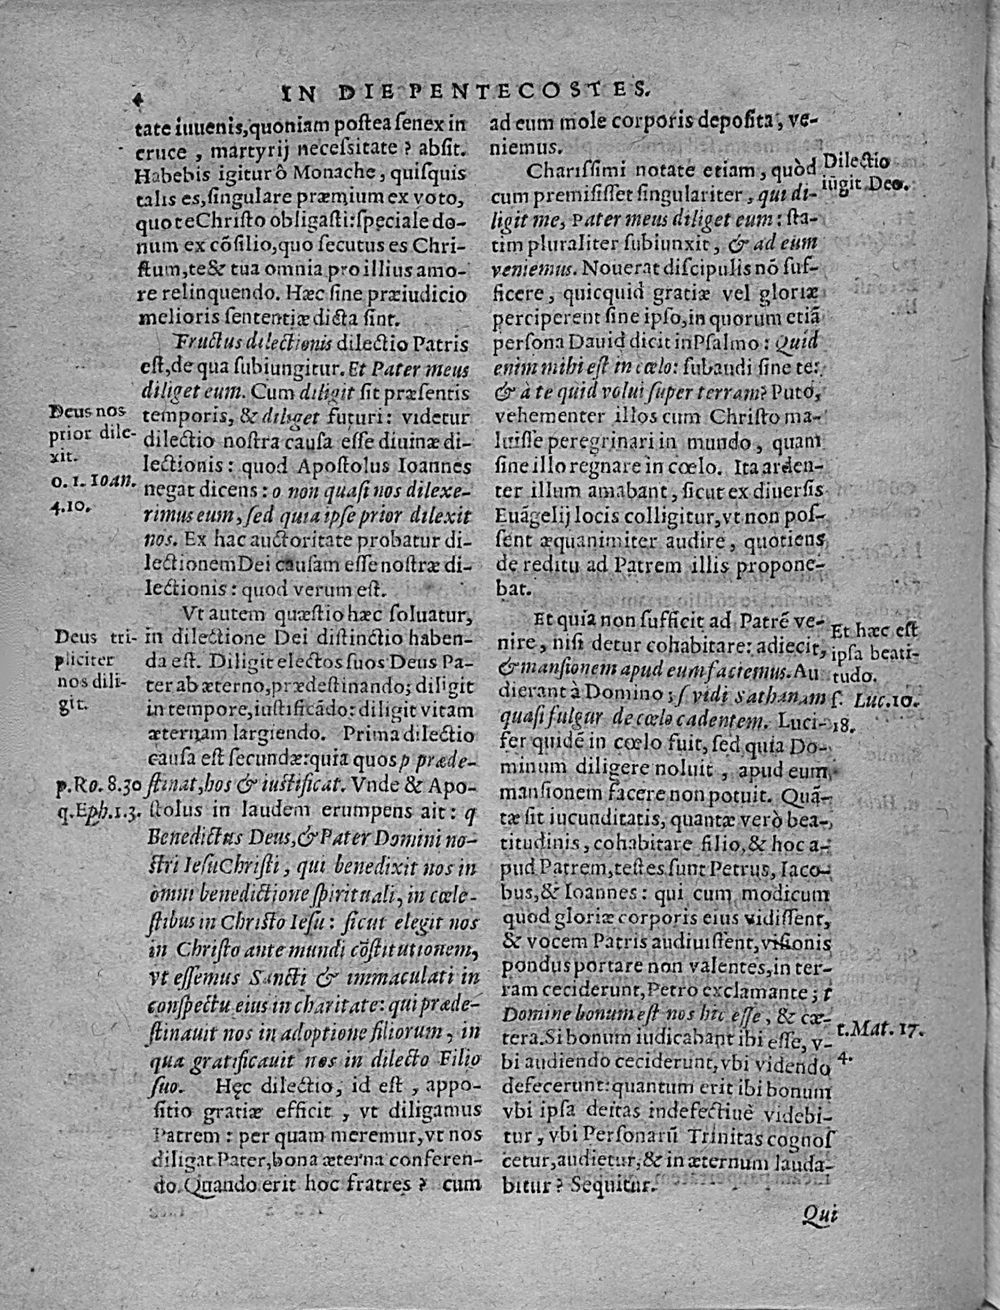 4
IN DIE PENTECOSTES.
tate iuuenis, quoniam postea senex in
cruce, martyrij necessitate? absit.
Habebis igitur ô Monache, quisquis
talis es, singulare præmium ex voto,
quo te Christo obligasti: speciale do-
num ex cõsilio, quo secutus es Chri-
stum, te & tua omnia pro illius amo-
re relinquendo. Hæc sine præiudicio
melioris sententiæ dicta sint.
Fructus dilectionis dilectio Patris
est, de qua subiungitur. Et Pater meus
diliget eum. Cum diligit sit præsentis
temporis, & diliget futuri: videtur
dilectio nostra causa esse diuinæ di-
lectionis: quod Apostolus Ioannes
negat dicens: o non quasi nos dilexe-
rimus eum, sed quia ipse prior dilexit
nos. Ex hac auctoritate probatur di-
lectionem Dei causam esse nostræ di-
lectionis: quod verum est.
Vt autem quæstio hæc soluatur,
in dilectione Dei distinctio haben-
da est. Diligit electos suos Deus Pa-
ter ab æterno, prædestinando; diligit
in tempore, iustificãdo: diligit vitam
æternam largiendo. Prima dilectio
causa est secundæ: quia quos p præde-
stinat, hos & iustificat. Vnde & Apo-
stolus in laudem erumpens ait: q
Benedictus Deus, & Pater Domini no-
stri Iesu Christi, qui benedixit nos in
omni benedictione spirituali, in cœle-
stibus in Christo Iesu: sicut elegit nos
in Christo ante mundi cõstitutionem,
vt essemus Sancti & immaculati in
conspectu eius in charitate: qui præde-
stinauit nos in adoptione filiorum, in
qua gratificauit nos in dilecto Filio
suo. Hęc dilectio, id est, appo-
sitio gratiæ efficit, vt diligamus
Patrem: per quam meremur, vt nos
diligat Pater, bona æterna conferen-
do. Quando erit hoc fratres? cum
Deus nos
prior dile-
xit.
o. 1. Ioan.
4.10.
Deus tri-
pliciter
nos dili-
git.
p. Ro. 8.30
q. Eph. 1.3.
ad eum mole corporis deposita, ve-
niemus.
Charissimi notate etiam, quòd
cum premisisset singulariter, qui di-
ligit me, Pater meus diliget eum: sta-
tim pluraliter subiunxit, & ad eum
veniemus. Nouerat discipulis nõ suf-
ficere, quicquid gratiæ vel gloriæ
perciperent sine ipso, in quorum etiã
persona Dauid dicit in Psalmo: Quid
enim mihi est in cœlo: subaudi sine te:
& à te quid volui super terram? Puto,
vehementer illos cum Christo ma-
luisse peregrinari in mundo, quam
sine illo regnare in cœlo. Ita arden-
ter illum amabant, sicut ex diuersis
Euãgelij locis colligitur, vt non pos-
sent æquanimiter audire, quotiens
de reditu ad Patrem illis propone-
bat.
Et quia non sufficit ad Patrẽ ve-
nire, nisi detur cohabitare: adiecit,
& mansionem apud eum faciemus. Au
dierant à Domino; s vidi Sathanam
quasi fulgur de cœlo cadentem. Luci-
fer quidẽ in cœlo fuit, sed quia Do-
minum diligere noluit, apud eum
mansionem facere non potuit. Quã-
tæ sit iucunditatis, quantæ verò bea-
titudinis, cohabitare filio, & hoc a-
pud Patrem, testes sunt Petrus, Iaco-
bus, & Ioannes: qui cum modicum
quod gloriæ corporis eius vidissent,
& vocem Patris audiuissent, visionis
pondus portare non valentes, in ter-
ram ceciderunt, Petro exclamante; t
Domine bonum est nos hic esse, & cæ-
tera. Si bonum iudicabant ibi esse, v-
bi audiendo ceciderunt, vbi videndo
defecerunt: quantum erit ibi bonum
vbi ipsa deitas indefectiuè videbi-
tur, vbi Personarũ Trinitas cognos
cetur, audietur, & in æternum lauda-
bitur? Sequitur.
Dilectio
iũgit Deo.
Et hæc est
ipsa beati-
tudo.
s. Luc. 10.
18.
t. Mat. 17.
4.
Qui